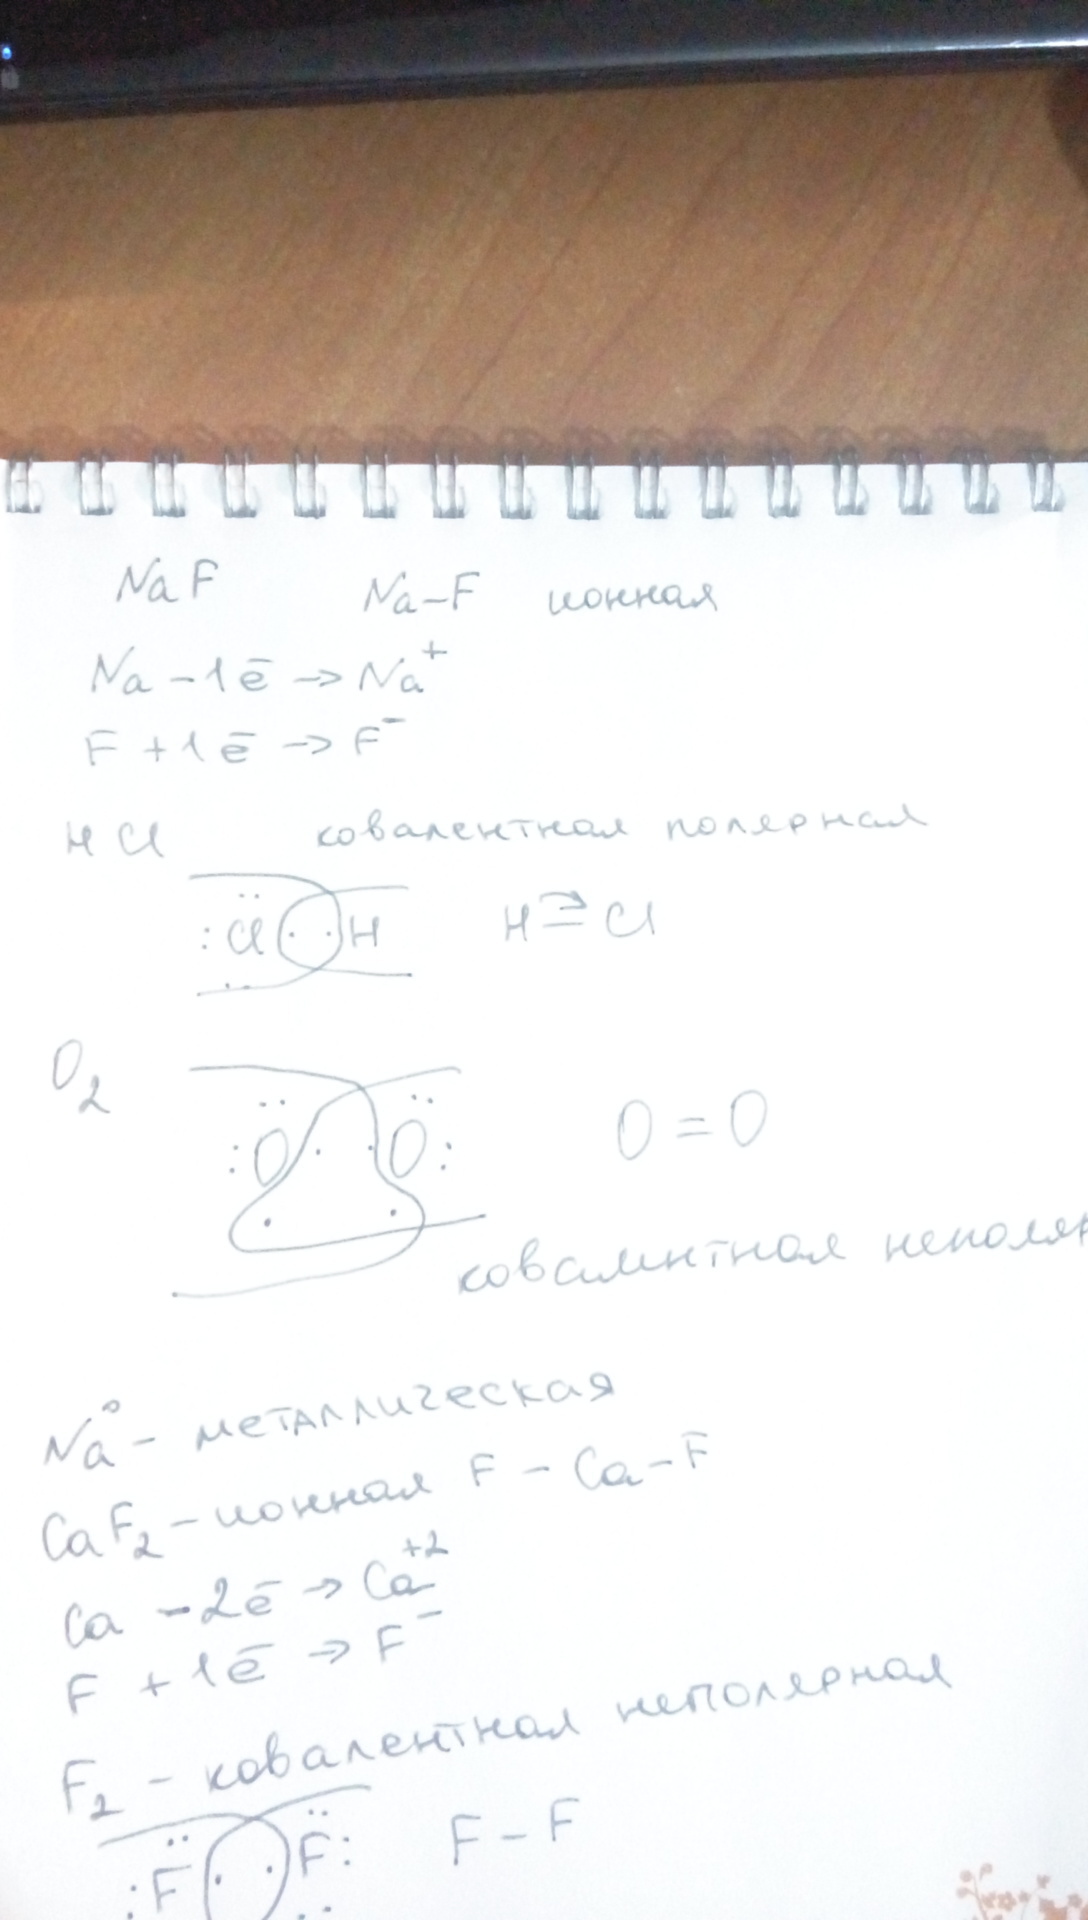 NaF Na-F ионная
Na - 1ē -> Na⁺
F + 1ē -> F⁻
HCl ковалентная полярная
:Cl H H Cl
O₂
:O O: O = O
ковалентная неполяр
Na° - металлическая
CaF₂ - ионная F - Ca - F
Ca - 2ē -> Ca⁺²
F + 1ē -> F⁻
F₂ - ковалентная неполярная
:F F: F - F